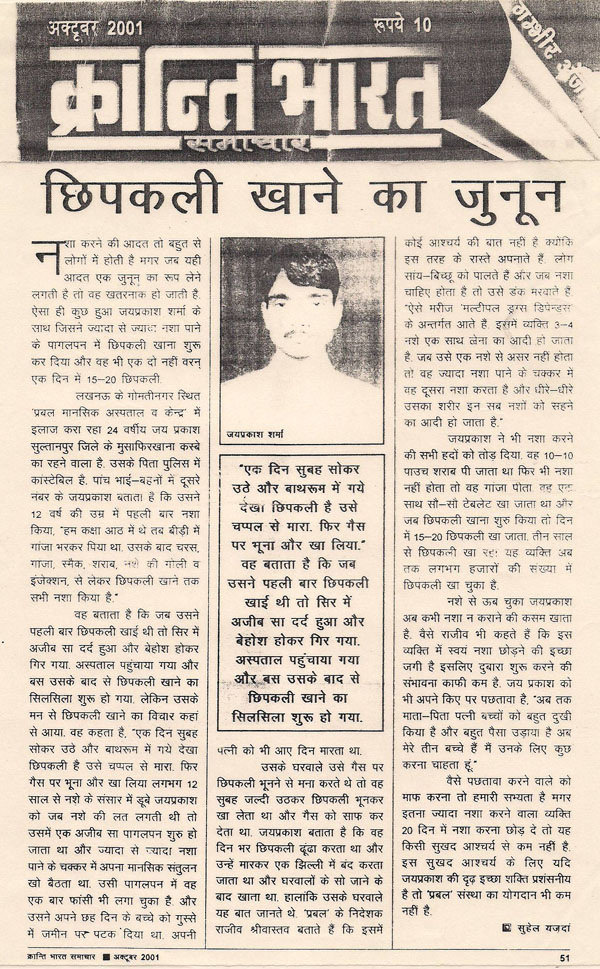 अक्टूबर 2001
रूपये 10
गम्भीर
क्रान्ति भारत
समाचार
छिपकली खाने का जुनून
नशा करने की आदत तो बहुत से
लोगों में होती है मगर जब यही
आदत एक जुनून का रूप लेने
लगती है तो वह खतरनाक हो जाती है.
ऐसा ही कुछ हुआ जयप्रकाश शर्मा के
साथ जिसने ज्यादा से ज्यादा नशा पाने
के पागलपन में छिपकली खाना शुरू
कर दिया और वह भी एक दो नहीं वरन्
एक दिन में 15–20 छिपकली.
लखनऊ के गोमतीनगर स्थित
'प्रबल मानसिक अस्पताल व केन्द्र' में
इलाज करा रहा 24 वर्षीय जय प्रकाश
सुल्तानपुर जिले के मुसाफिरखाना कस्बे
का रहने वाला है. उसके पिता पुलिस में
कांस्टेबिल है. पांच भाई–बहनों में दूसरे
नंबर के जयप्रकाश बताता है कि उसने
12 वर्ष की उम्र में पहली बार नशा
किया, "हम कक्षा आठ में थे तब बीड़ी में
गांजा भरकर पिया था. उसके बाद चरस,
गांजा, स्मैक, शराब, नशे की गोली व
इंजेक्शन, से लेकर छिपकली खाने तक
सभी नशा किया है."
वह बताता है कि जब उसने
पहली बार छिपकली खाई थी तो सिर में
अजीब सा दर्द हुआ और बेहोश होकर
गिर गया. अस्पताल पहुंचाया गया और
बस उसके बाद से छिपकली खाने का
सिलसिला शुरू हो गया. लेकिन उसके
मन से छिपकली खाने का विचार कहां
से आया. वह कहता है, "एक दिन सुबह
सोकर उठे और बाथरूम में गये देखा
छिपकली है उसे चप्पल से मारा. फिर
गैस पर भूना और खा लिया लगभग 12
साल से नशे के संसार में डूबे जयप्रकाश
को जब नशे की लत लगती थी तो
उसमें एक अजीब सा पागलपन शुरू हो
जाता था और ज्यादा से ज्यादा नशा
पाने के चक्कर में अपना मानसिक संतुलन
खो बैठता था. उसी पागलपन में वह
एक बार फांसी भी लगा चुका है. और
उसने अपने छह दिन के बच्चे को गुस्से
में जमीन पर पटक दिया था. अपनी
जयप्रकाश शर्मा
"एक दिन सुबह सोकर
उठे और बाथरूम में गये
देखा छिपकली है उसे
चप्पल से मारा. फिर गैस
पर भूना और खा लिया."
वह बताता है कि जब
उसने पहली बार छिपकली
खाई थी तो सिर में
अजीब सा दर्द हुआ और
बेहोश होकर गिर गया.
अस्पताल पहुंचाया गया
और बस उसके बाद से
छिपकली खाने का
सिलसिला शुरू हो गया.
पत्नी को भी आए दिन मारता था.
उसके घरवाले उसे गैस पर
छिपकली भूनने से मना करते थे तो वह
सुबह जल्दी उठकर छिपकली भूनकर
खा लेता था और गैस को साफ कर
देता था. जयप्रकाश बताता है कि वह
दिन भर छिपकली ढूंढा करता था और
उन्हें मारकर एक झिल्ली में बंद करता
जाता था और घरवालों के सो जाने के
बाद खाता था. हालांकि उसके घरवाले
यह बात जानते थे. 'प्रबल' के निदेशक
राजीव श्रीवास्तव बताते हैं कि इसमें
कोई आश्चर्य की बात नहीं है क्योंकि
इस तरह के रास्ते अपनाते हैं. लोग
सांप–बिच्छू को पालते हैं और जब नशा
चाहिए होता है तो उसे डंक मरवाते हैं.
"ऐसे मरीज 'मल्टीपल ड्रग्स डिपेन्डेस'
के अन्तर्गत आते हैं. इसमें व्यक्ति 3–4
नशे एक साथ लेना का आदी हो जाता
है. जब उसे एक नशे से असर नहीं होता
तो वह ज्यादा नशा पाने के चक्कर में
वह दूसरा नशा करता है और धीरे–धीरे
उसका शरीर इन सब नशों को सहने
का आदी हो जाता है."
जयप्रकाश ने भी नशा करने
की सभी हदों को तोड़ दिया. वह 10–10
पाउच शराब पी जाता था फिर भी नशा
नहीं होता तो वह गांजा पीता. वह एक
साथ सौ–सौ टेबलेट खा जाता था और
जब छिपकली खाना शुरु किया तो दिन
में 15–20 छिपकली खा जाता. तीन साल
से छिपकली खा रहा यह व्यक्ति अब
तक लगभग हजारों की संख्या में
छिपकली खा चुका है.
नशे से ऊब चुका जयप्रकाश
अब कभी नशा न कराने की कसम खाता
है. वैसे राजीव भी कहते हैं कि इस
व्यक्ति में स्वयं नशा छोड़ने की इच्छा
जगी है इसलिए दुबारा शुरू करने की
संभावना काफी कम है. जय प्रकाश को
भी अपने किए पर पछतावा है, "अब तक
माता–पिता पत्नी बच्चों को बहुत दुखी
किया है और बहुत पैसा उड़ाया है अब
मेरे तीन बच्चे हैं मैं उनके लिए कुछ
करना चाहता हूं."
वैसे पछतावा करने वाले को
माफ करना तो हमारी सभ्यता है मगर
इतना ज्यादा नशा करने वाला व्यक्ति
20 दिन में नशा करना छोड़ दे तो यह
किसी सुखद आश्चर्य से कम नहीं है.
इस सुखद आश्चर्य के लिए यदि
जयप्रकाश की दृढ़ इच्छा शक्ति प्रशंसनीय
है तो 'प्रबल' संस्था का योगदान भी कम
नहीं है.
सुहेल यजदां
क्रान्ति भारत समाचार ■ अक्टूबर 2001
51